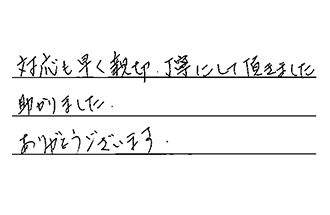 対応も早く親切、丁寧にして頂きました
助かりました.
ありがとうございます.